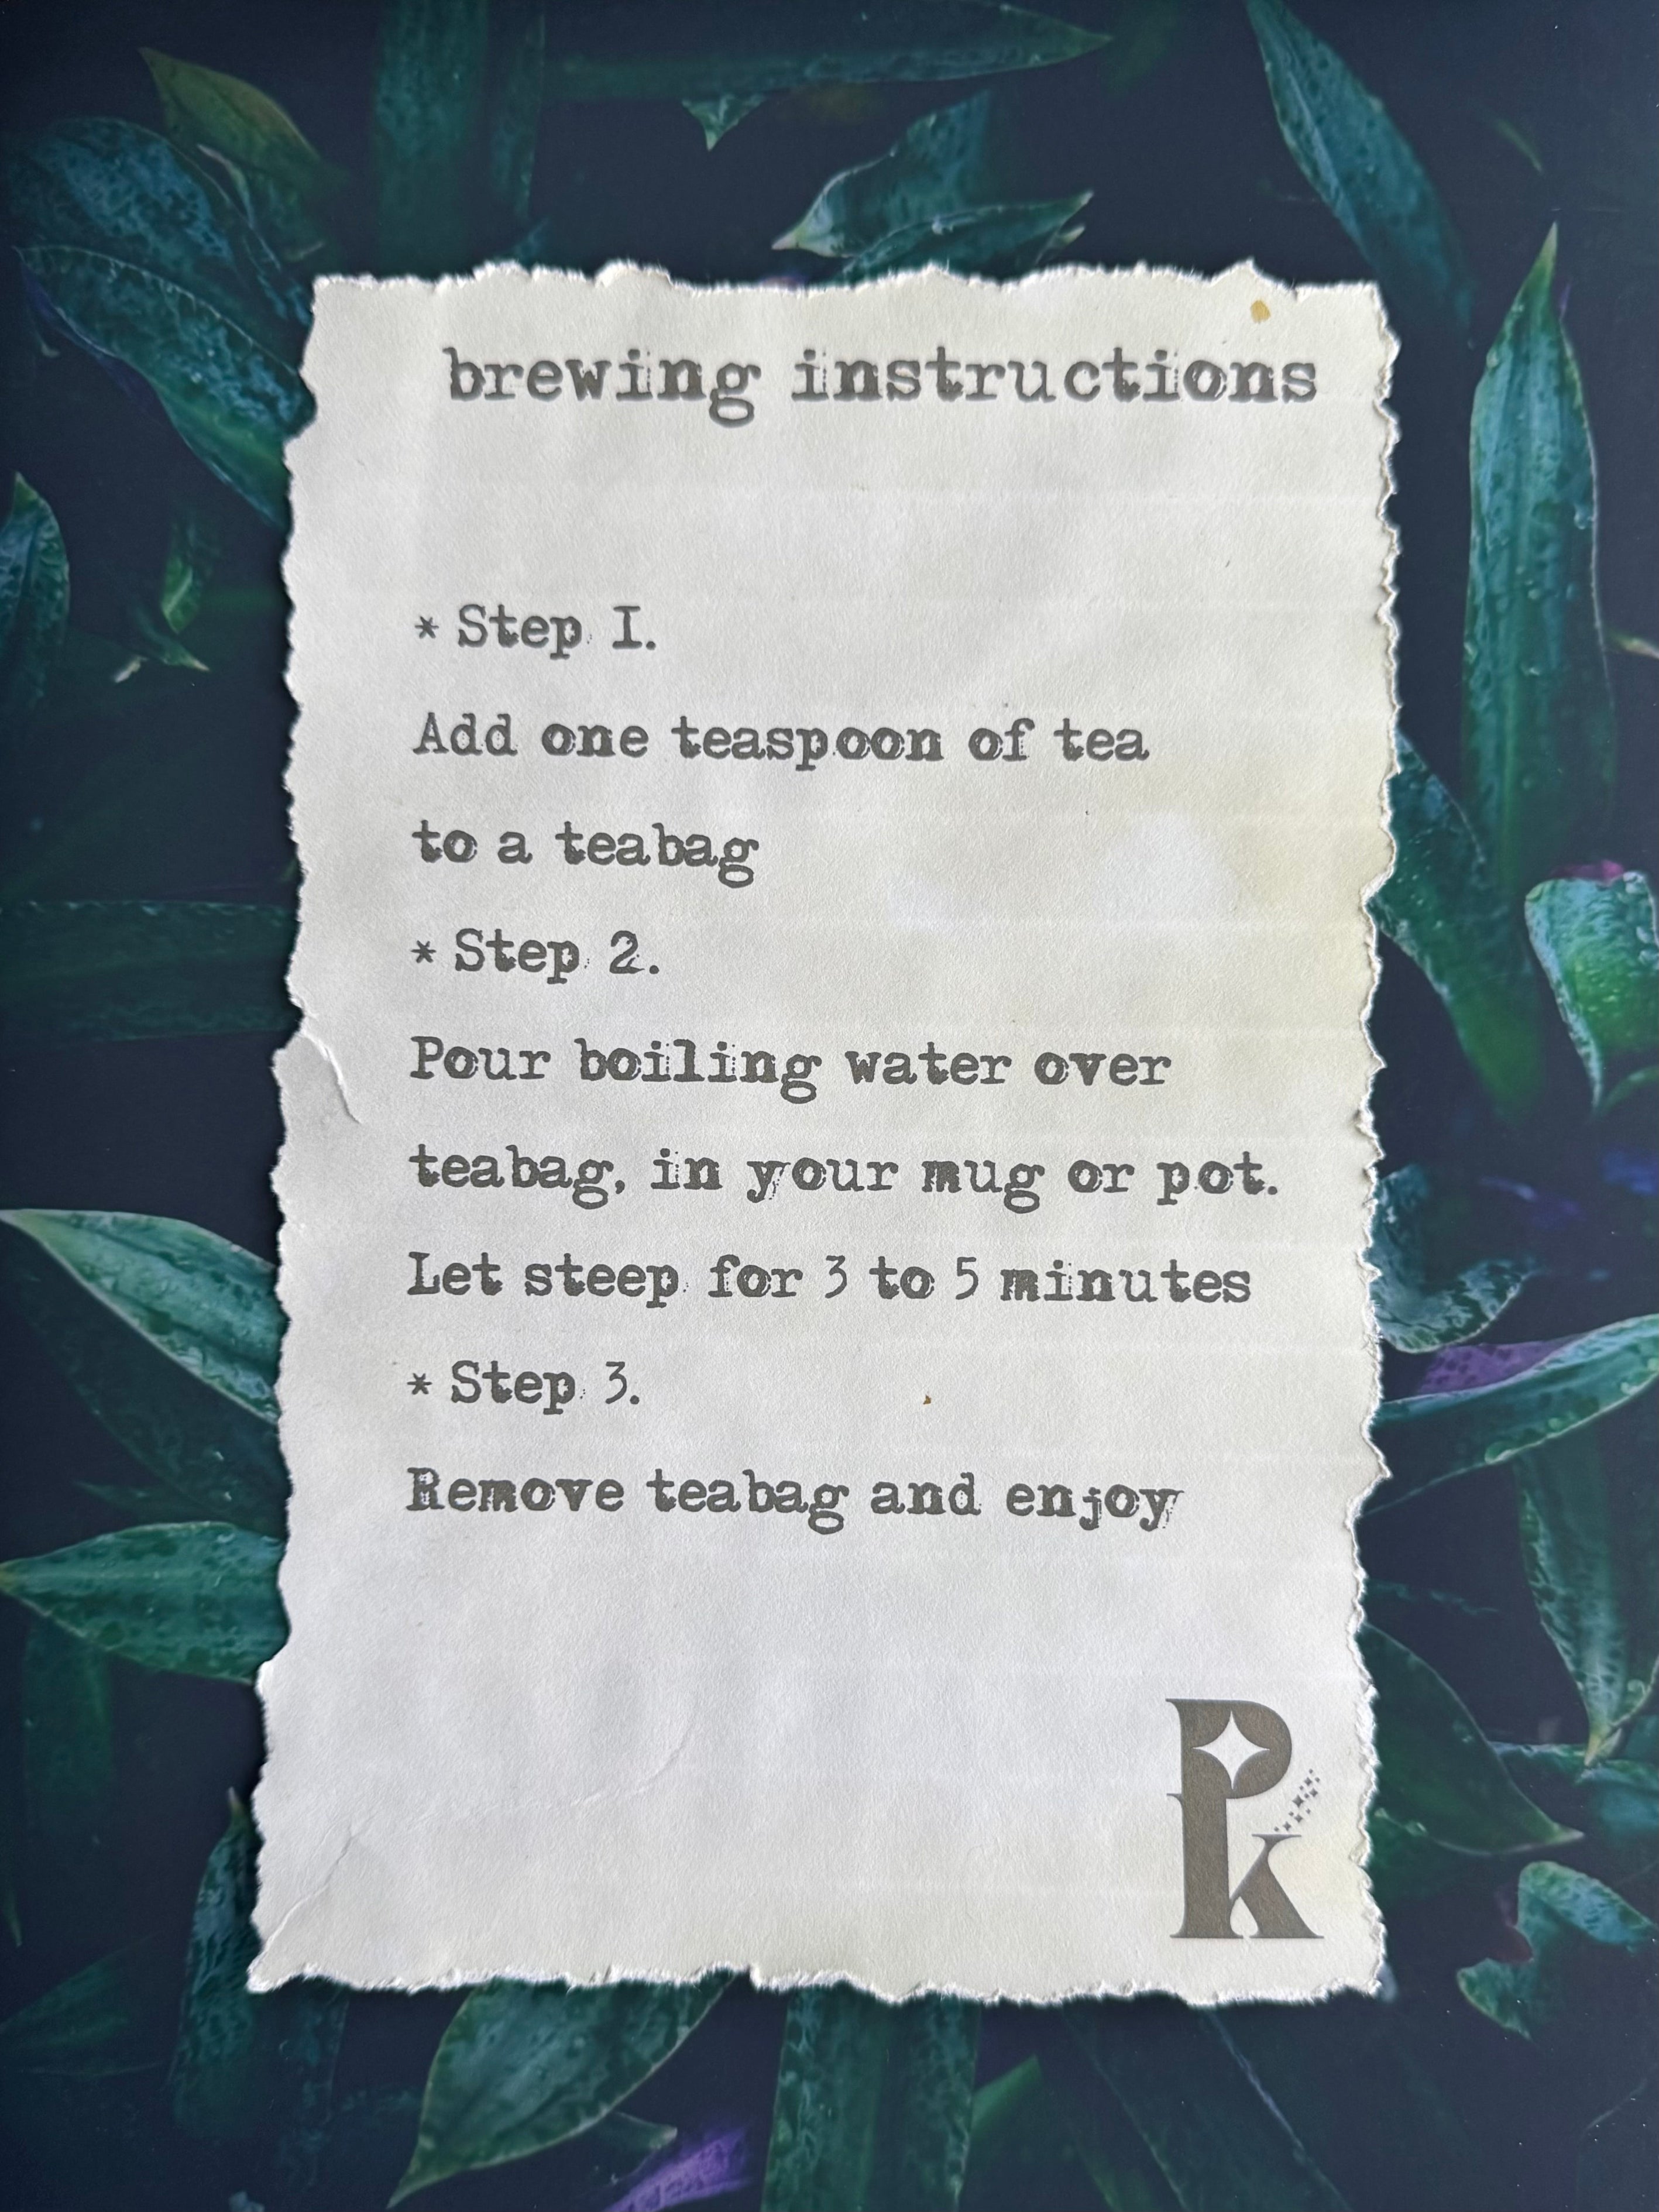 brewing instructions
* Step 1.
Add one teaspoon of tea
to a teabag
* Step 2.
Pour boiling water over
teabag, in your mug or pot.
Let steep for 3 to 5 minutes
* Step 3.
Remove teabag and enjoy
Pk